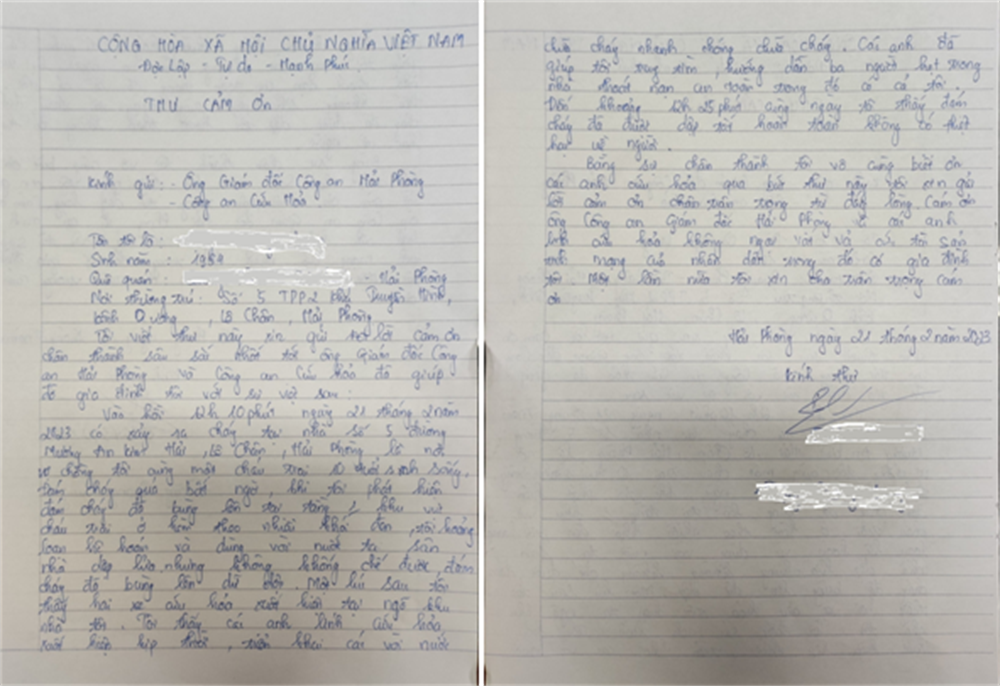 CỘNG HÒA XÃ HỘI CHỦ NGHĨA VIỆT NAM
Độc Lập - Tự do - Hạnh Phúc
THƯ CẢM ƠN
Kính gửi: - Ông Giám đốc Công an Hải Phòng
- Công an Cứu Hoả
Tên tôi là:
Sinh năm: 1989
Quê quán: - Hải Phòng
Nơi thường trú: Số 5 TPP2 phố
Dương, Lê Chân, Hải Phòng
Tôi viết thư này xin gửi lời cảm ơn
chân thành sâu sắc nhất tới ông Giám đốc Công
an Hải Phòng và Công an Cứu hỏa đã giúp
đỡ gia đình tôi với sự việc sau:
Vào hồi 12h 10 phút ngày 21 tháng 2 năm
2023 có xảy ra cháy tại nhà số 5 đường
Mương An Kim Hải, Lê Chân, Hải Phòng là nơi
vợ chồng tôi cùng một cháu trai 10 tuổi sinh sống.
Đám cháy quá bất ngờ, khi tôi phát hiện
đám cháy đã bùng lên tại tầng 1 khu vực
cháu trai ở kèm theo nhiều khói đen, tôi hoảng
loạn hô hoán và dùng vòi nước tại sân
nhà dập lửa nhưng không khống chế được, đám
cháy đã bùng lên dữ dội. Một lúc sau tôi
thấy hai xe cứu hỏa xuất hiện tại ngõ khu
nhà tôi. Tôi thấy các anh lính cứu hỏa
rất kịp thời, triển khai các vòi nước
chữa cháy nhanh chóng chữa cháy. Các anh đã
giúp tôi truy tìm, hướng dẫn ba người kẹt trong
nhà thoát nạn an toàn trong đó có cả tôi.
Đến khoảng 12h 25 phút cùng ngày tôi thấy đám
cháy đã được dập tắt hoàn toàn không có thiệt
hại về người.
Bằng sự chân thành tôi vô cùng biết ơn
các anh cứu hỏa qua bức thư này tôi xin gửi
lời cảm ơn chân trân trọng từ đáy lòng cảm ơn
ông Công an Giám đốc Hải Phòng và các anh
lính cứu hoả không ngại vất vả cứu tài sản
tính mạng của nhân dân trong đó có gia đình
tôi. Một lần nữa tôi xin trân trọng cảm
ơn
Hải Phòng ngày 21 tháng 2 năm 2023
Kính thư